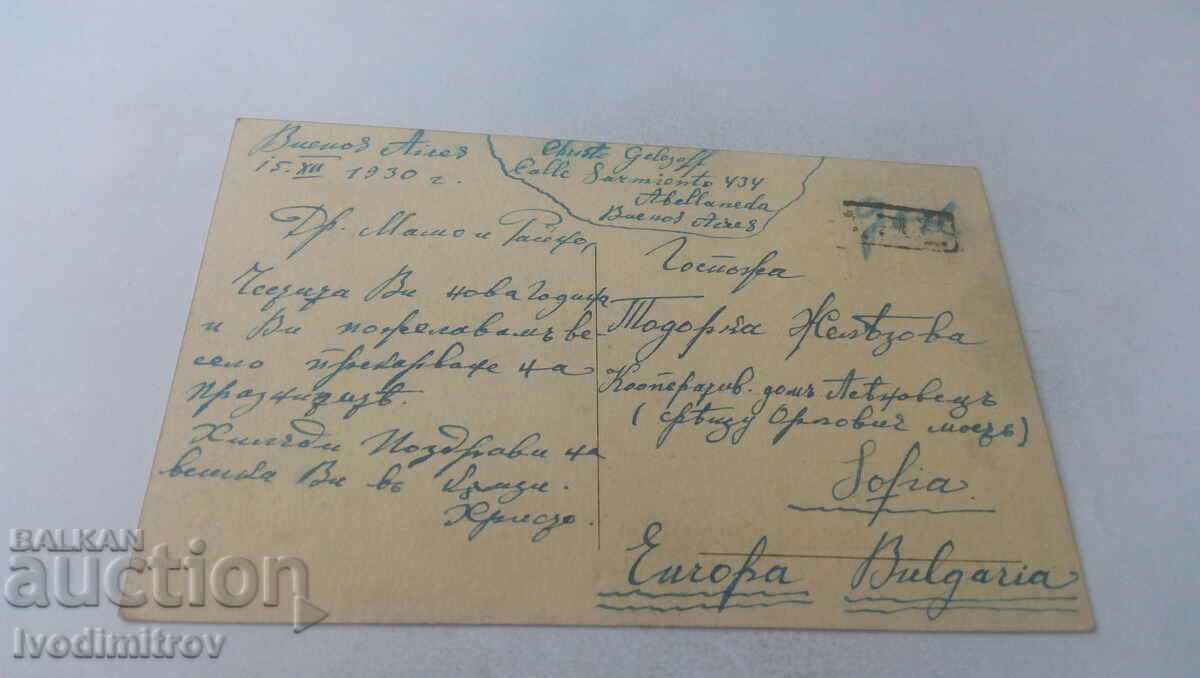 Buenos Aires
15. XII 1930 г.
Christo Gelezoff
Calle Sarmiento 434
Abellaneda
Buenos Aires
Др. Мамо и
Честита Ви нова година
и Ви пожелавамъ ве-
село прекарване на
празницитѣ.
Хиляди поздрави на
всички Ви въ
Христо.
Госпожа
Тодорка Желѣзова
Кооператив. домъ Лѣковецъ
(срѣщу Орлович мостъ)
Sofia
Europa Bulgaria
BALKAN
auction
Ivodimitrov